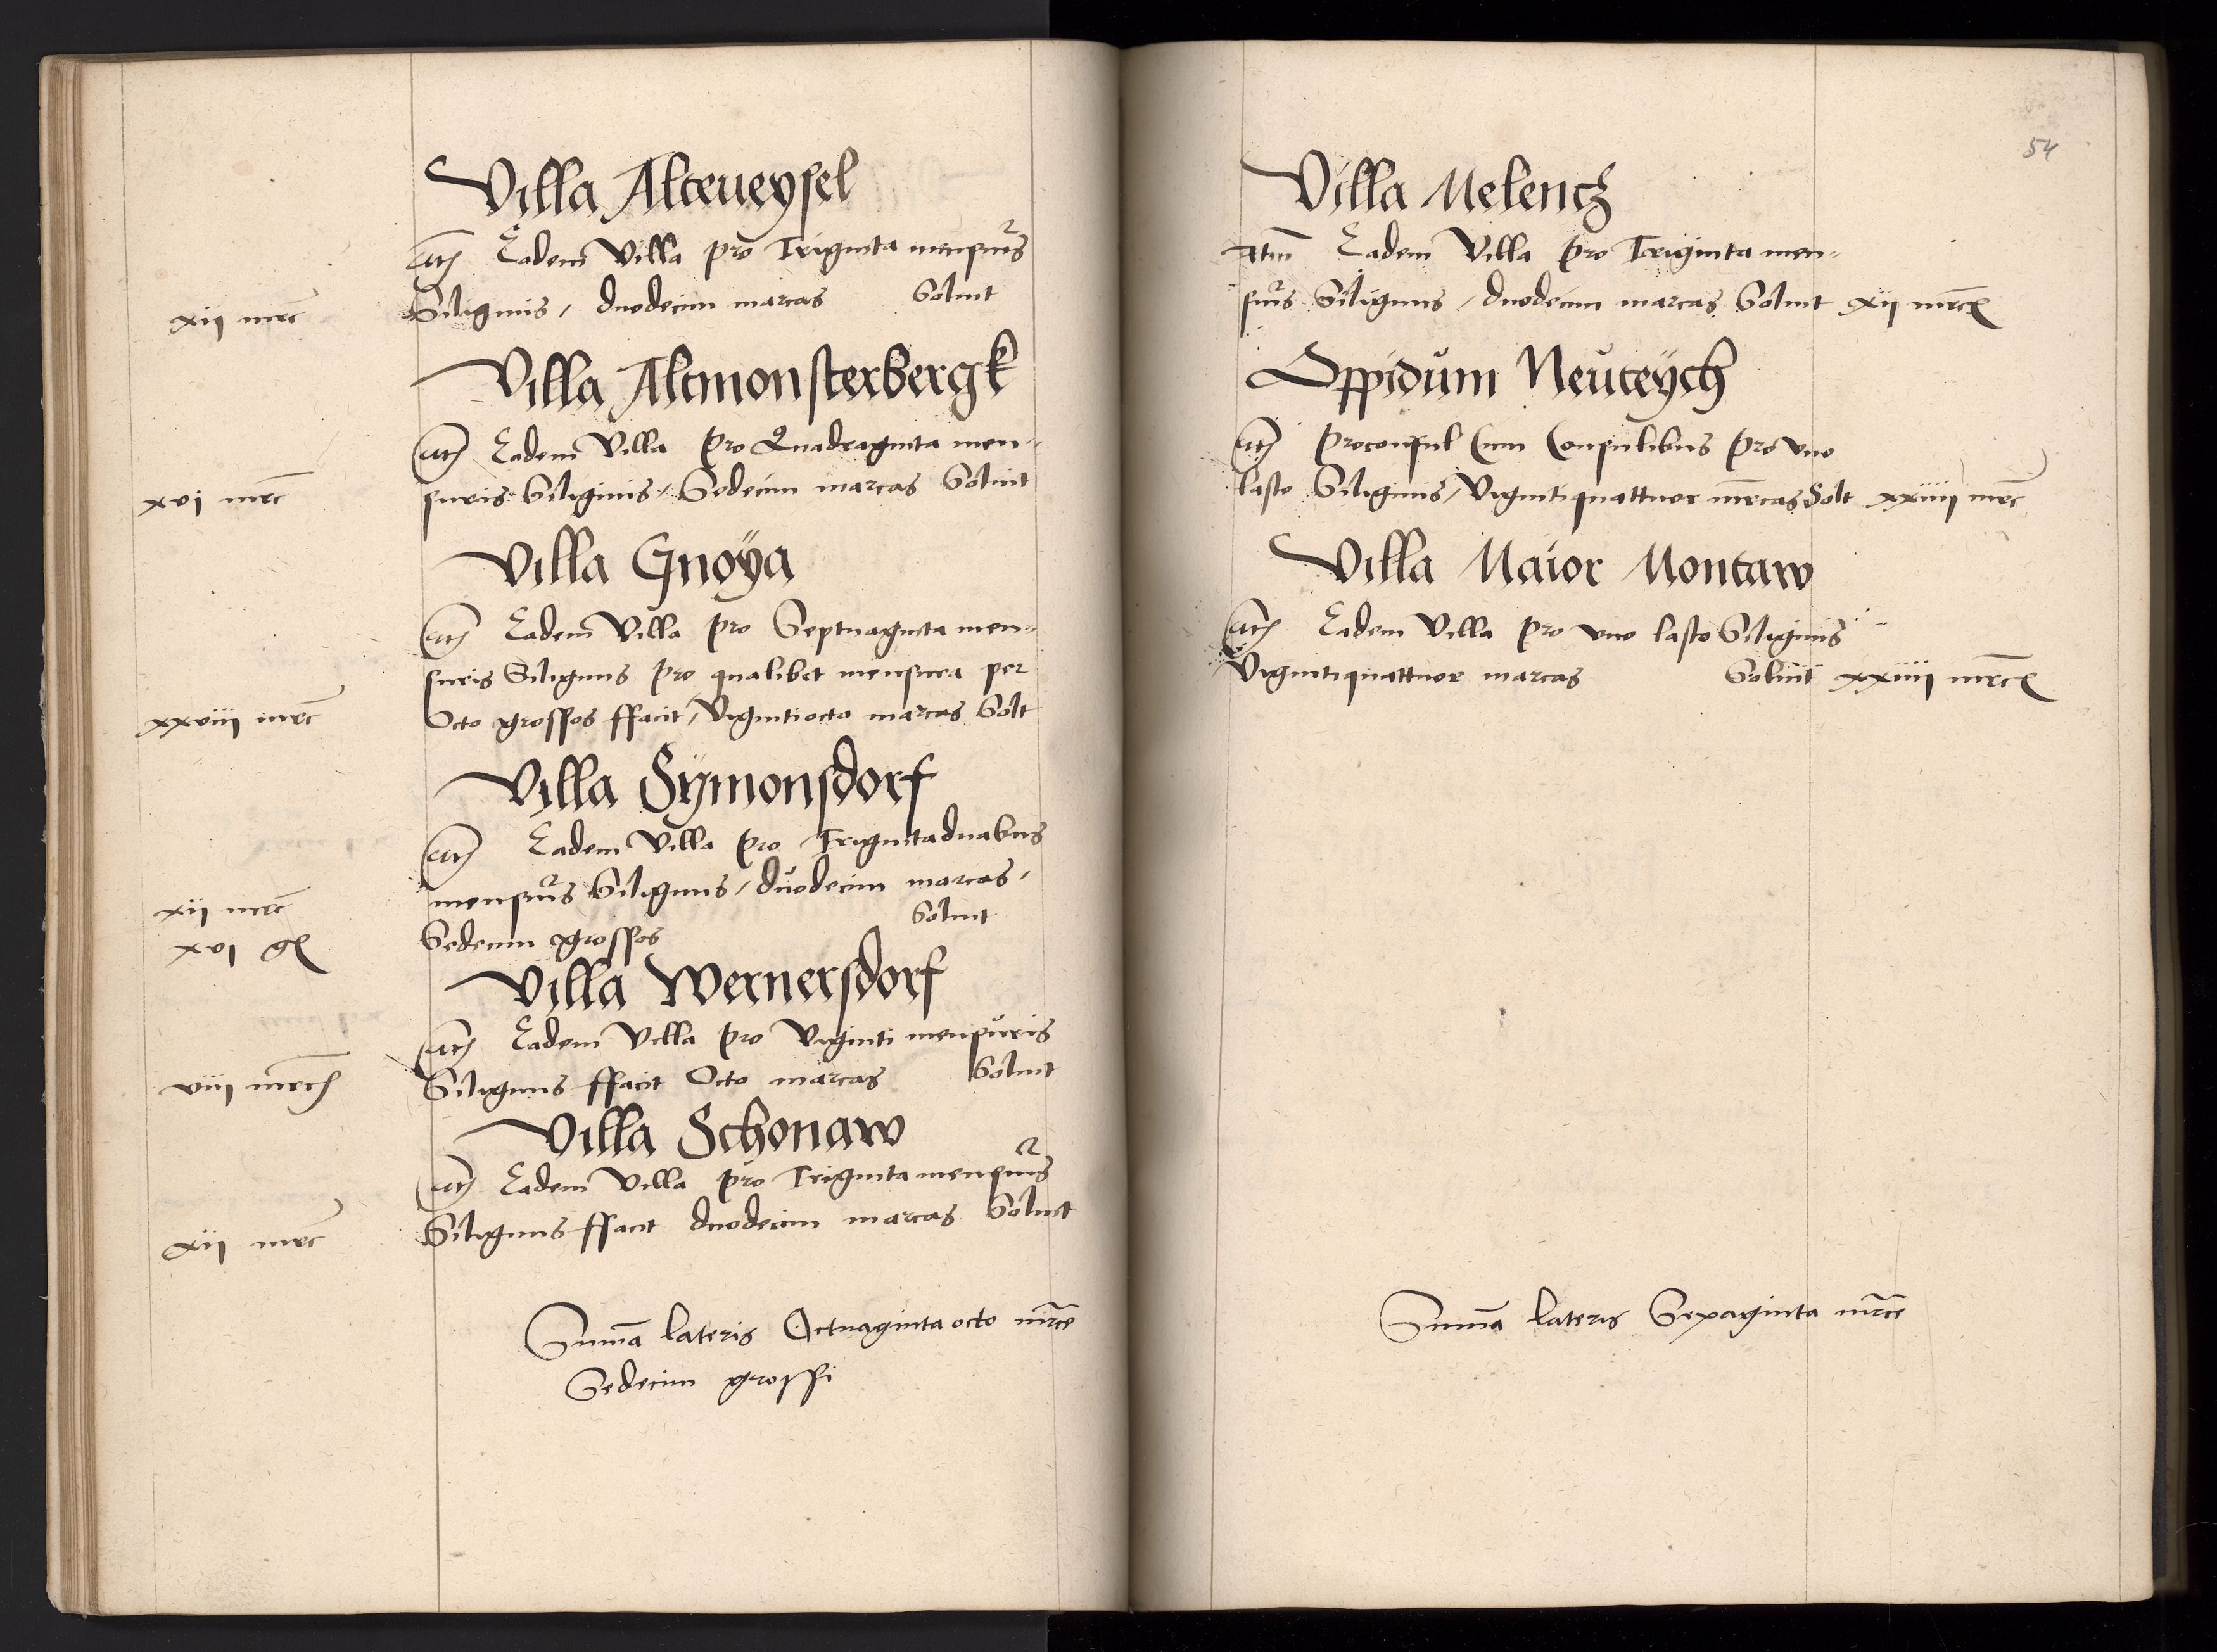 Villa Alteueysel
Itm Eadem Villa pro Triginta mensuris
Siliginis / duodecim marcas Soluit
xij mrc
Villa Altmonsterbergk
Itm Eadem Villa pro Quadraginta men-
suris Siliginis / Sedecim marcas Soluit
xvj mrc
Villa Gnoÿa
Itm Eadem Villa pro Septuaginta men-
suris Siliginis pro qualibet mensura per
Octo grossos ffacit / Vigintiocto marcas Solt
xxviij mrc
Villa Sÿmonsdorf
Itm Eadem Villa pro Trigintaduabus
mensuris Siliginis / duodecim marcas /
Sedecim grossos Soluit
xij mrc
xvj gr
Villa Wernersdorf
Itm Eadem Villa pro Viginti mensuris
Siliginis ffacit Octo marcas Soluit
viij mrc
Villa Schonaw
Itm Eadem Villa pro Triginta mensuris
Siliginis ffacit duodecim marcas Soluit
xij mrc
Summa lateris Octuagintaocto mrce
Sedecim grossi
54
Villa Melencz
Itm Eadem Villa pro Triginta men-
suris Siliginis / duodecim marcas Soluit xij mrc
Oppidum Neuteÿch
Itm Proconsul Cum Consulibus pro vno
lasto Siliginis / Vigintiquattuor mrcas Solt xxiiij mrc
Villa Maior Montaw
Itm Eadem Villa pro vno lasto Siliginis
Vigintiquattuor marcas Soluit xxiiij mrc
Summa lateris Sexaginta mrce